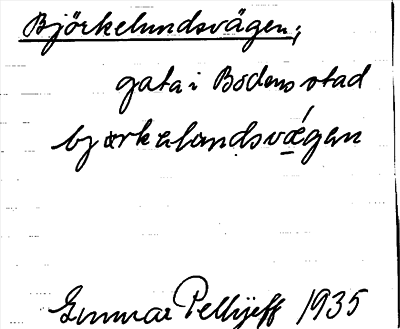 Björkelundsvägen;
gata i Bodens stad
bjørkɐlɷndsvǽ̠gɐn
Gunnar Pellijeff 1935